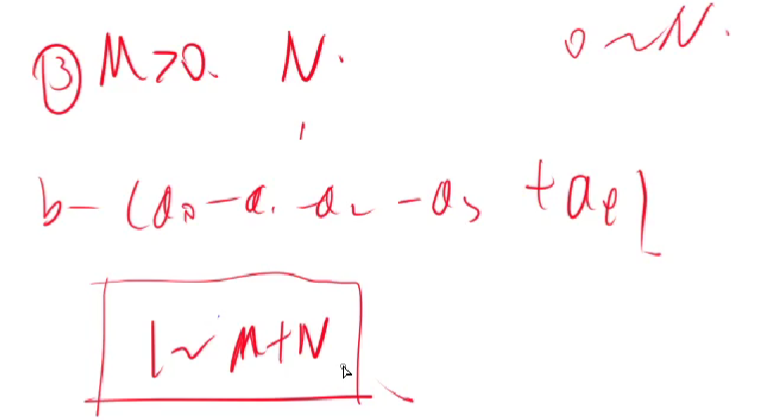 ③ M>0. N.
0~N.
b-(a₀-a₁-a₂-a₃+aₑ)
1~M+N